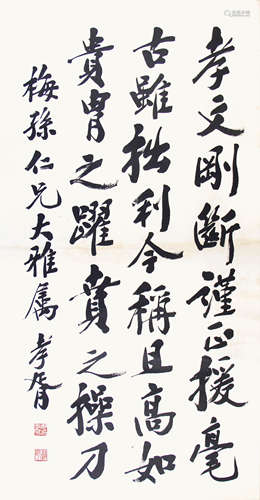 孝文剛斷謹正援毫
古雖拙利今稱且高如
貴胄之躍賁之操刀
梅孫仁兄大雅屬 孝胥